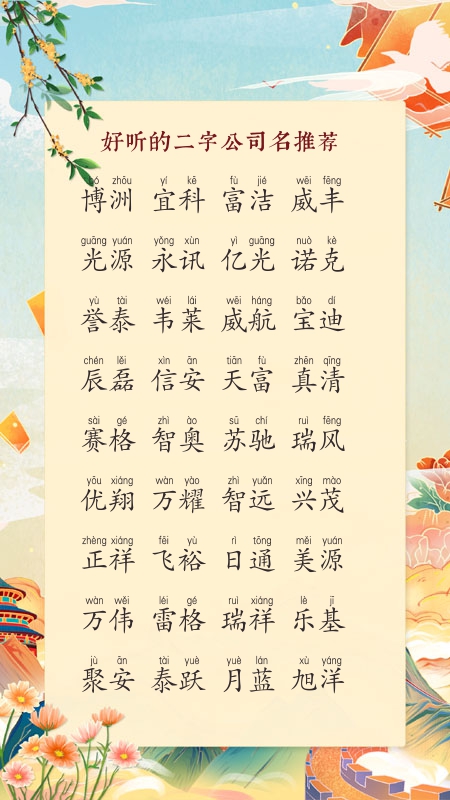 好听的二字公司名推荐
bó zhōu yí kē fù jié wēi fēng
博洲 宜科 富洁 威丰
guāng yuán yǒng xùn yì guāng nuò kè
光源 永讯 亿光 诺克
yù tài wéi lái wēi háng bǎo dí
誉泰 韦莱 威航 宝迪
chén lěi xìn ān tiān fù zhēn qīng
辰磊 信安 天富 真清
sài gé zhì ào sū chí ruì fēng
赛格 智奥 苏驰 瑞风
yōu xiáng wàn yào zhì yuǎn xīng mào
优翔 万耀 智远 兴茂
zhèng xiáng fēi yù rì tōng měi yuán
正祥 飞裕 日通 美源
wàn wěi léi gé ruì xiáng lè jī
万伟 雷格 瑞祥 乐基
jù ān tài yuè yuè lán xù yáng
聚安 泰跃 月蓝 旭洋